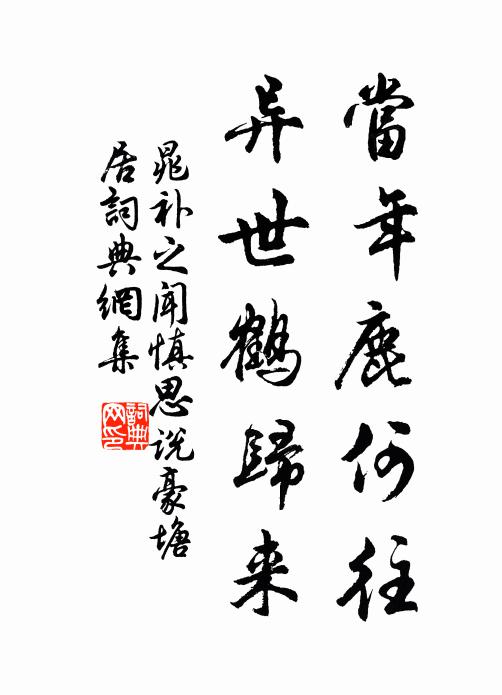 當年鹿何往
异世鶴歸来
晁补之聞慎思说豪塘
居詞典網集
詞典
网印